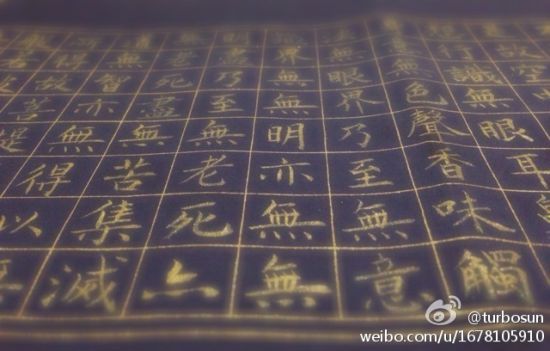 故空中
行識無眼耳
無色聲香味觸
無眼界乃至無意
界無無明亦無無
明盡乃至無老死亦
死盡無苦集滅
無智亦無得以
得故菩提
@turbosun
weibo.com/u/1678105910